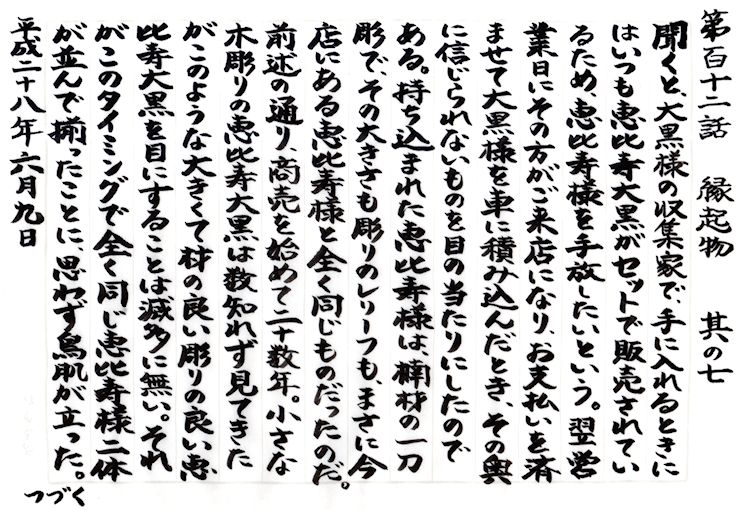 第百十二話　縁起物　其の七
聞くと、大黒様の収集家で、手に入れるときに
はいつも恵比寿大黒がセットで販売されてい
るため、恵比寿様を手放したいという。翌営
業日にその方がご来店になり、お支払いを済
ませて大黒様を車に積み込んだとき、その奥
に信じられないものを目の当たりにしたので
ある。持ち込まれた恵比寿様は、楠材の一刀
彫で、その大きさも彫りのレリーフも、まさに今
店にある恵比寿様と全く同じものだったのだ。
前述の通り、商売を始めて二十数年。小さな
木彫りの恵比寿大黒は数知れず見てきた
がこのような大きくて材の良い彫りの良い恵
比寿大黒を目にすることは滅多に無い。それ
がこのタイミングで全く同じ恵比寿様二体
が並んで揃ったことに、思わず鳥肌が立った。
平成二十八年六月九日
つづく